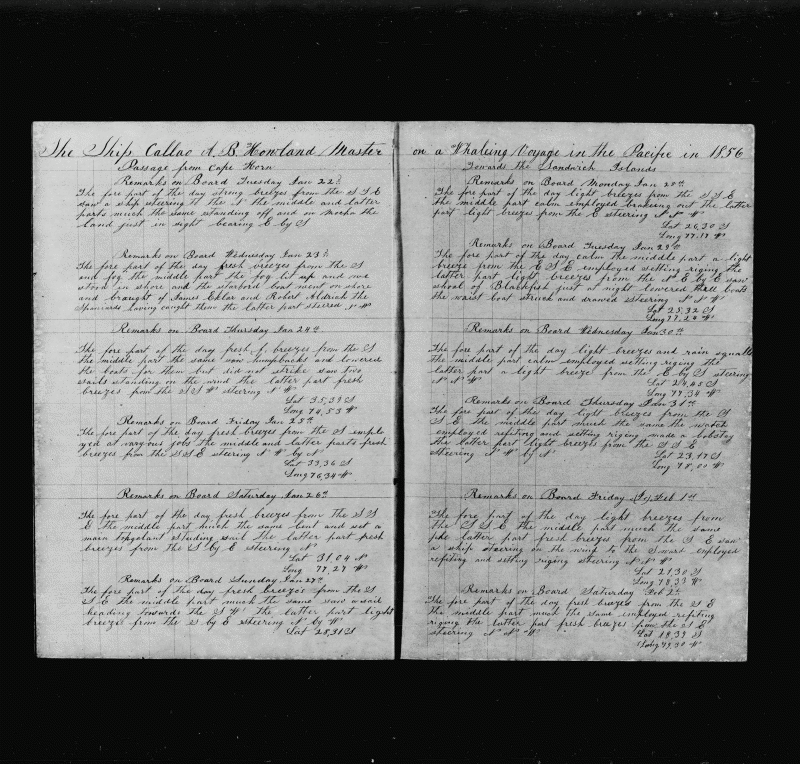 The Ship Callao A. B. Howland Master
Passage from Cape Horn
Remarks on Board Tuesday Jan 22d
The fore part of the day strong breezes from the S S E
saw a ship steering to the N the middle and latter
parts much the same standing off and on Mocha the
land just in sight bearing E by S
Remarks on Board Wednesday Jan 23d
The fore part of the day fresh breezes from the S
and fog the middle part the fog lit up and we
stood in shore and the starbord boat went on shore
and braught of James and Robert Aldrich the
Spaniards having caught them the latter part steered
Remarks on Board Thursday Jan 24th
The fore part of the day fresh breezes from the S
the middle part the same saw humpbacks and lowered
the boats for them but did not strike saw two
sails standing on the wind the latter part fresh
breezes from the S S W steering N W
Lat 35,39 S
Long 74,53 W
Remarks on Board Friday Jan 25th
The fore part of the day fresh breezes from the S emplo
yed at varyous jobs the middle and latter parts fresh
breezes from the S S E steering N W by N
Lat 33,36 S
Long 76,34 W
Remarks on Board Saturday Jan 26th
The fore part of the day fresh breezes from the S S
E the middle part much the same bent and set a
main topgalant studing sail the latter part fresh
breezes from the S by E steering N
Lat 31,04 N
Long 77,27 W
Remarks on Board Sunday Jan 27th
The fore part of the day fresh breezes from the S
S E the middle part much the same saw a sail
heading towards the S W the latter part light
breezes from the S by E steering N by W
Lat 28,31 S
on a Whaleing Voyage in the Pacific in 1856
Towards the Sandwich Islands
Remarks on Board Monday Jan 28th
The fore part of the day light breezes from the S S E
the middle part calm employed breaking out the latter
part light breezes from the E steering N N W
Lat 26,30 S
Long 77,17 W
Remarks on Board Tuesday Jan 29th
The fore part of the day calm the middle part a light
breeze from the E S E employed setting riging the
latter part light breezes from the N E by E saw
shoal of Blackfish just at night lowered three boats
the waist boat struck and drawed steering N N W
Lat 25,32 S
Long 77,24 W
Remarks on Board Wednesday Jan 30th
The fore part of the day light breezes and rain squalls
the middle part calm employed setting riging the
latter part a light breeze from the E by S steering
N N W
Lat 24,45 S
Long 77,34 W
Remarks on Board Thursday Jan 31st
The fore part of the day light breezes from the S
S E the middle part much the same the watch
employed refiting and setting riging made a bobstay
the latter part light breezes from the S S E
steering N W by N
Lat 23,17 S
Long 78,00 W
Remarks on Board Friday Feb 1st
The fore part of the day light breezes from
the S S E the middle part much the same
the latter part fresh breezes from the S E saw
a ship steering on the wind to the S ward employed
refiting and setting riging steering N N W
Lat 21,30 S
Long 78,33 W
Remarks on Board Saturday Feb 2d
The fore part of the day fresh breezes from the S E
the middle part much the same employed refiting
riging the latter part fresh breezes from the S E
steering N N W
Lat 18,39 S
Long 79,30 W